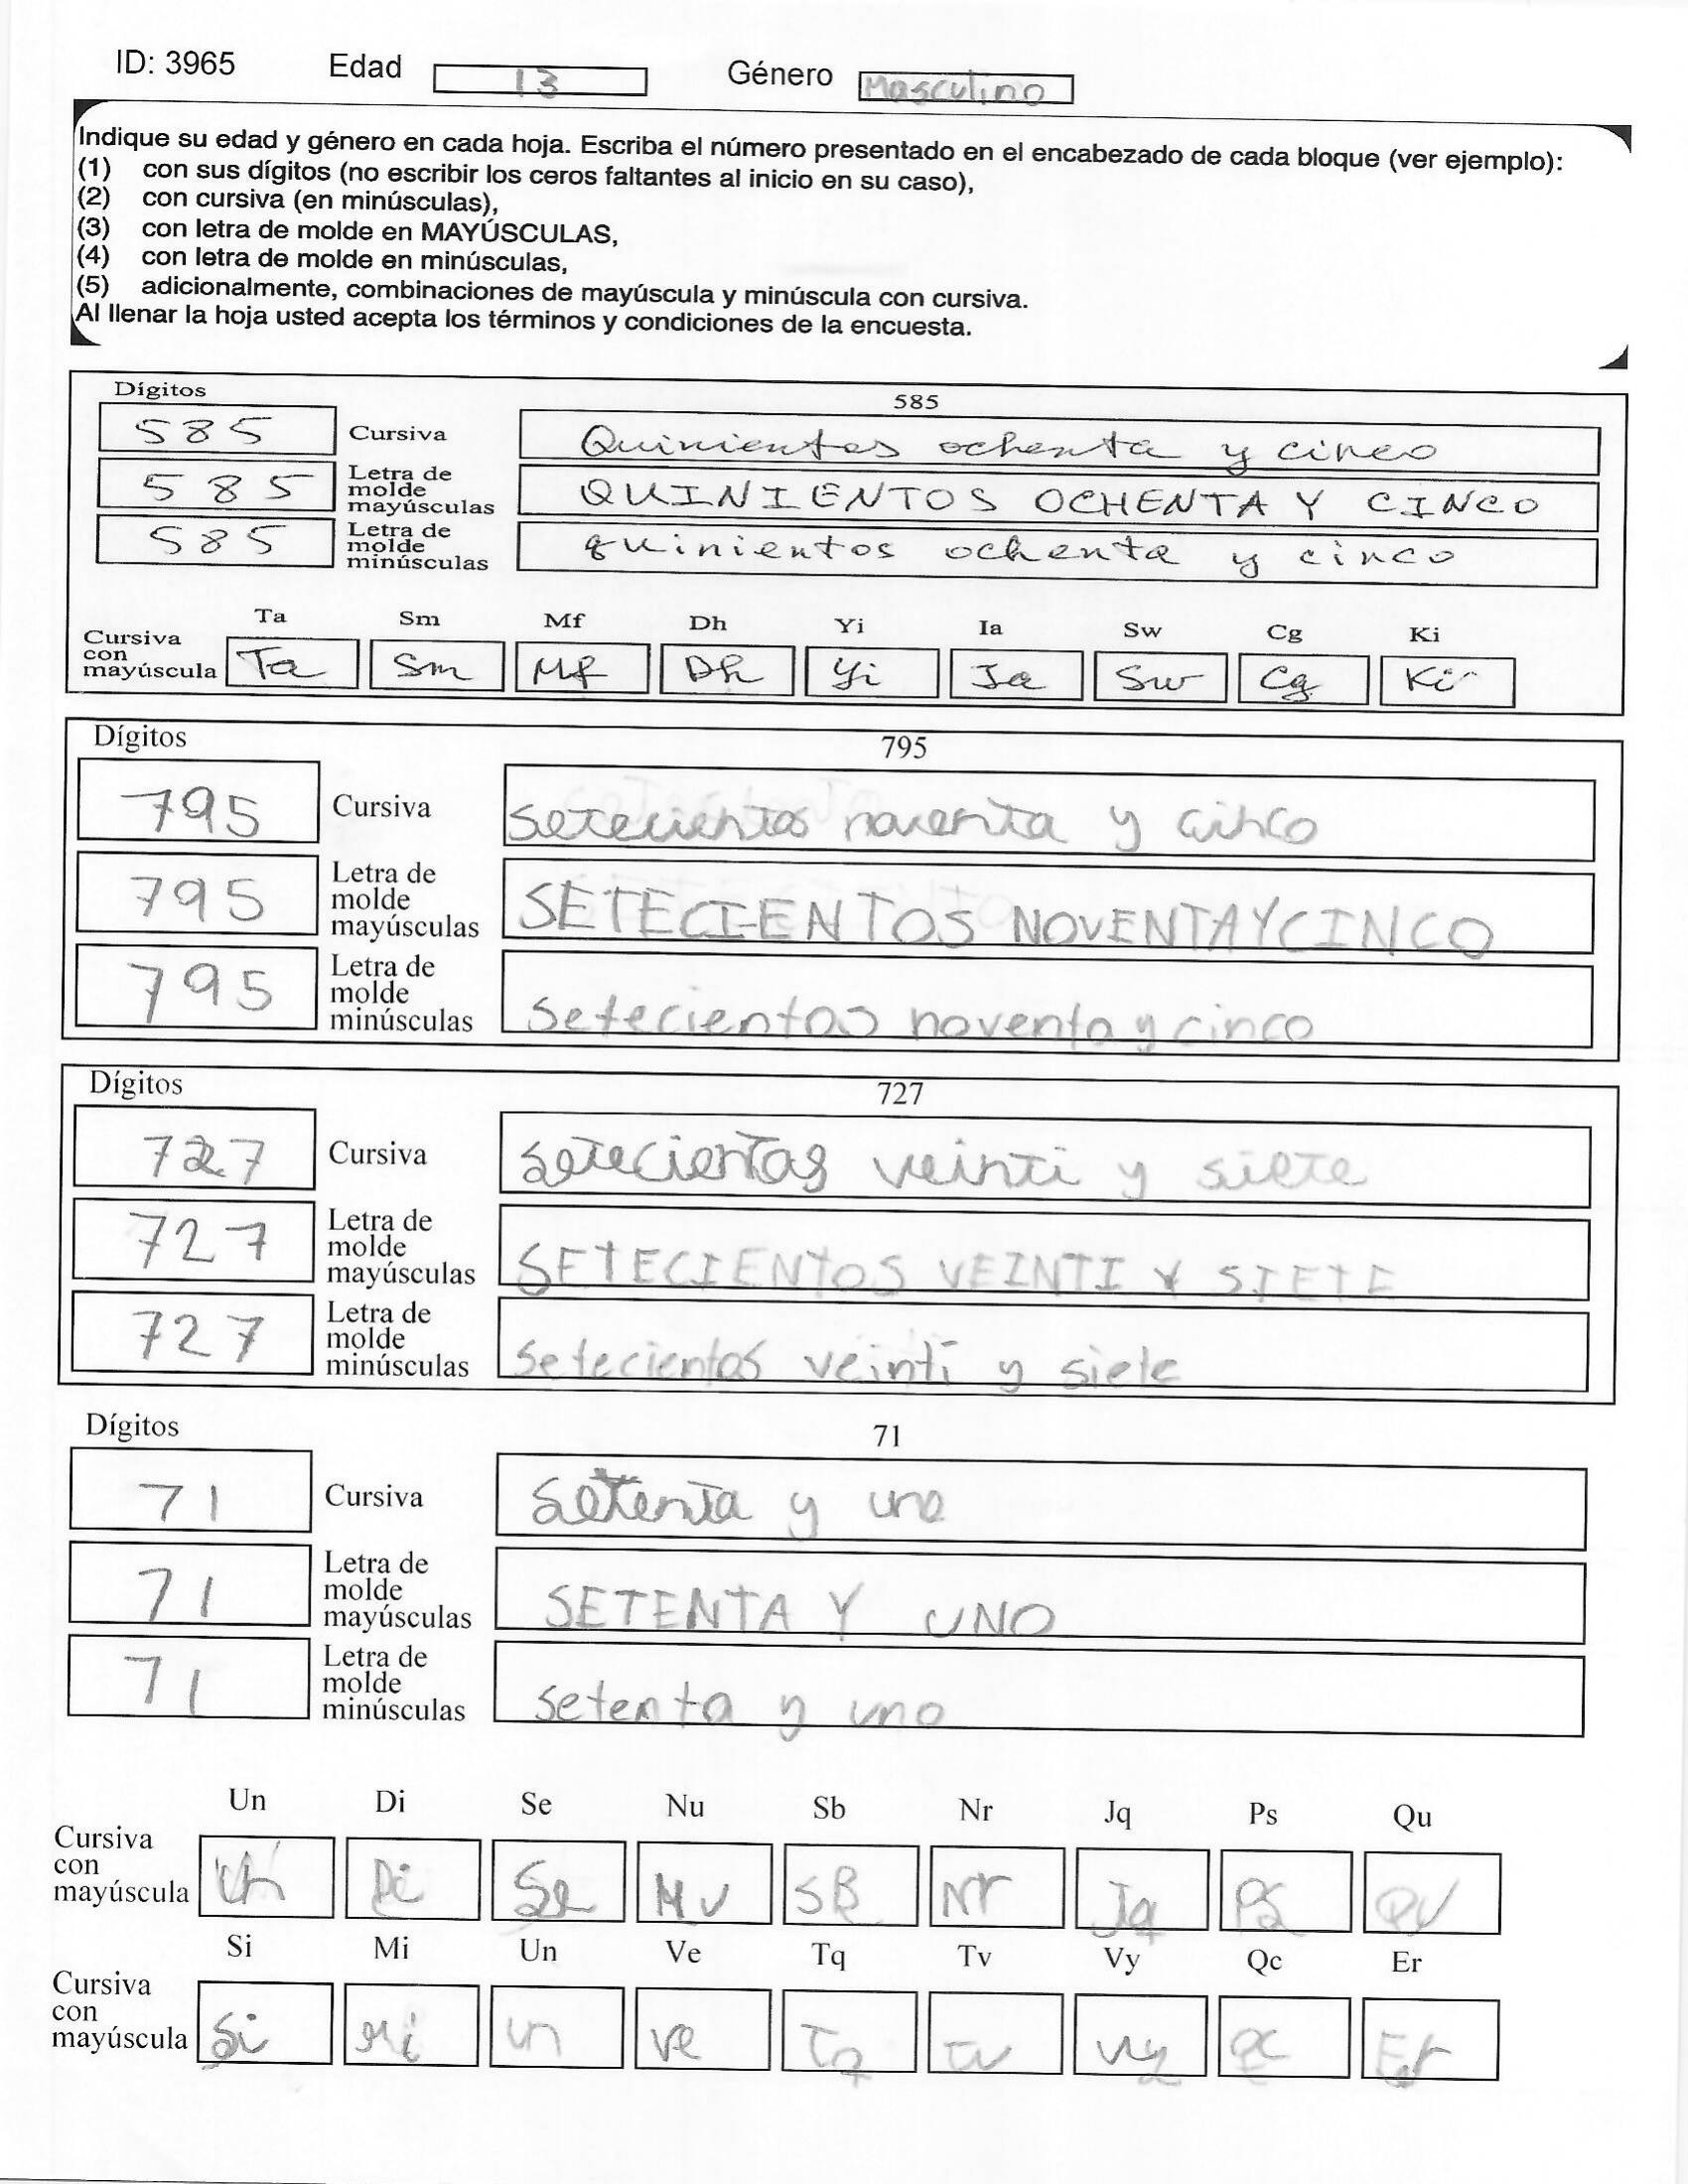 ID: 3965 Edad 13 Género Masculino
Indique su edad y género en cada hoja. Escriba el número presentado en el encabezado de cada bloque (ver ejemplo):
(1) con sus dígitos (no escribir los ceros faltantes al inicio en su caso),
(2) con cursiva (en minúsculas),
(3) con letra de molde en MAYÚSCULAS,
(4) con letra de molde en minúsculas,
(5) adicionalmente, combinaciones de mayúscula y minúscula con cursiva.
Al llenar la hoja usted acepta los términos y condiciones de la encuesta.
Dígitos 585
585 Cursiva Quinientos ochenta y cinco
585 Letra de molde mayúsculas QUINIENTOS OCHENTA Y CINCO
585 Letra de molde minúsculas quinientos ochenta y cinco
Ta Sm Mf Dh Yi Ia Sw Cg Ki
Cursiva con mayúscula Ta Sm Mf Dh Yi Ia Sw Cg Ki
Dígitos 795
795 Cursiva setecientos noventa y cinco
795 Letra de molde mayúsculas SETECIENTOS NOVENTA Y CINCO
795 Letra de molde minúsculas setecientos noventa y cinco
Dígitos 727
727 Cursiva setecientos veinti y siete
727 Letra de molde mayúsculas SETECIENTOS VEINTI Y SIETE
727 Letra de molde minúsculas setecientos veinti y siete
Dígitos 71
71 Cursiva setenta y uno
71 Letra de molde mayúsculas SETENTA Y UNO
71 Letra de molde minúsculas setenta y uno
Un Di Se Nu Sb Nr Jq Ps Qu
Cursiva con mayúscula Un Di Se Nu SB Nr Jq Ps Qu
Si Mi Un Ve Tq Tv Vy Qc Er
Cursiva con mayúscula Si Mi Un Ve Tq Tv Vy Qc Er